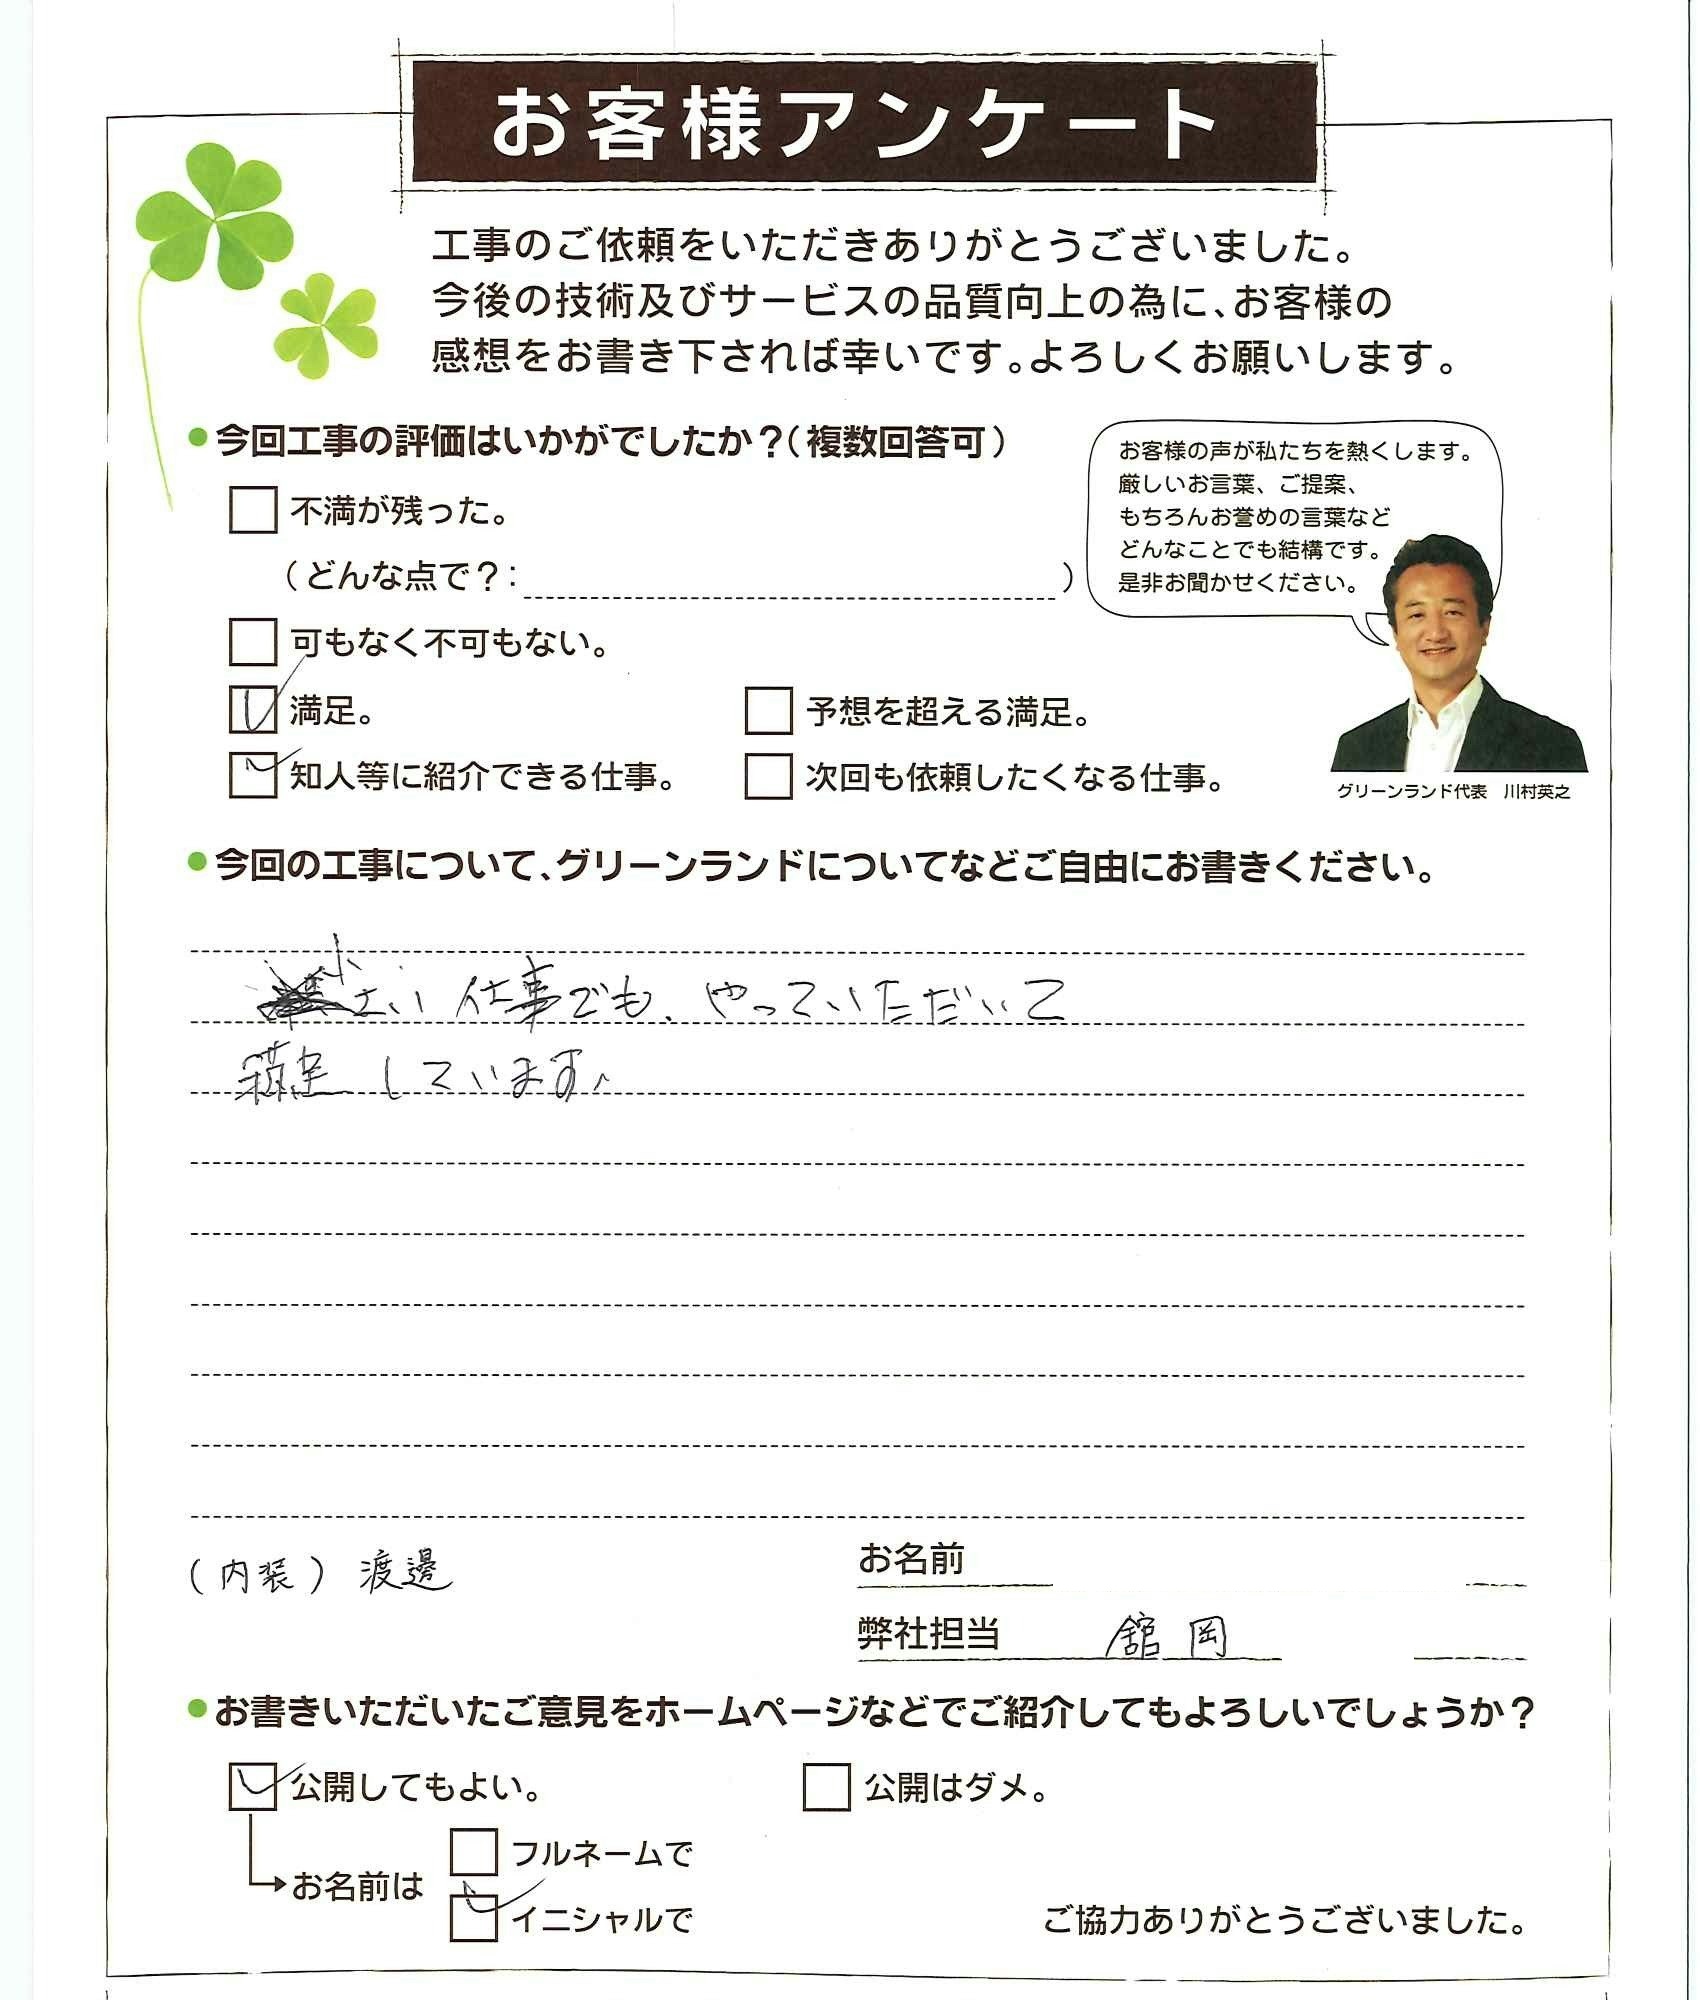 お客様アンケート
工事のご依頼をいただきありがとうございました。
今後の技術及びサービスの品質向上の為に、お客様の
感想をお書き下されば幸いです。よろしくお願いします。
●今回工事の評価はいかがでしたか?(複数回答可)
不満が残った。
(どんな点で?: )
可もなく不可もない。
満足。
予想を超える満足。
知人等に紹介できる仕事。
次回も依頼したくなる仕事。
お客様の声が私たちを熱くします。
厳しいお言葉、ご提案、
もちろんお誉めの言葉など
どんなことでも結構です。
是非お聞かせください。
グリーンランド代表 川村英之
●今回の工事について、グリーンランドについてなどご自由にお書きください。
小さい仕事でも、やっていただいて
満足しています。
(内装) 渡邊
お名前
弊社担当 舘岡
●お書きいただいたご意見をホームページなどでご紹介してもよろしいでしょうか?
公開してもよい。
公開はダメ。
お名前は
フルネームで
イニシャルで
ご協力ありがとうございました。